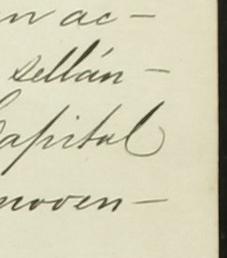 en ac-
sellán-
Capital
noven-